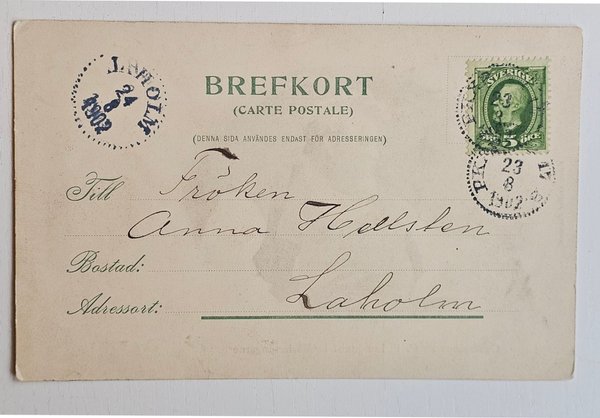 LAHOLM
24
8
1902
BREFKORT
(CARTE POSTALE)
(DENNA SIDA ANVÄNDES ENDAST FÖR ADRESSERINGEN)
SVERIGE
5 ÖRE
23
8
PKXP
23
8
1902
Till Fröken
Anna Hellsten
Bostad:
Adressort: Laholm